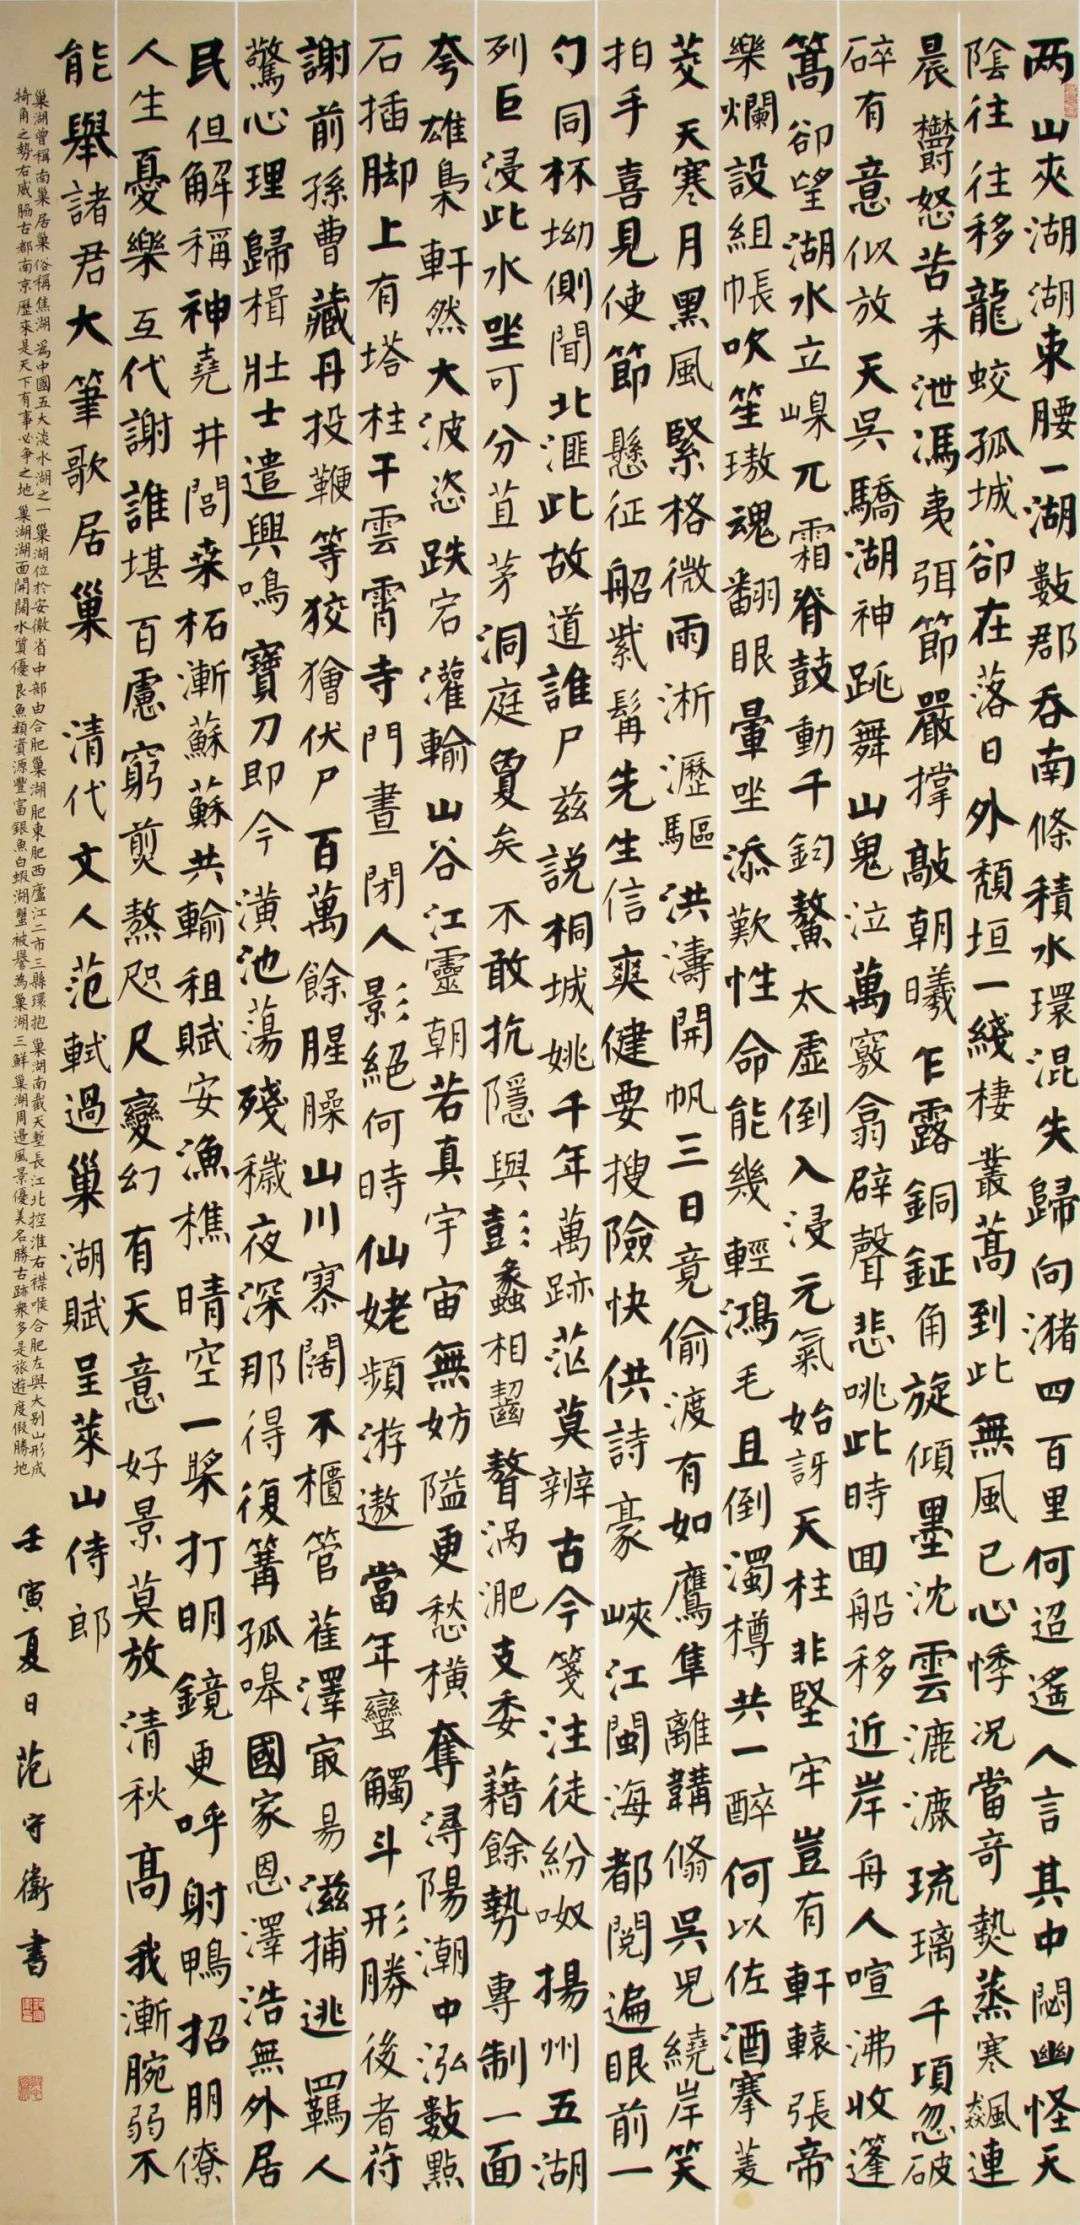 两山夾湖湖束腰一湖數郡吞南條積水環混失歸向瀦四百里何迢遙人言其中閟幽怪天
陰往往移龍蛟孤城卻在落日外頹垣一綫棲叢蒿到此無風已心悸况當奇熱蒸寒飆連
晨欝怒苦未泄馮夷弭節嚴撑敲朝曦乍露銅鉦角旋傾墨沈雲漉漉琉璃千頃忽破
碎有意似放天吳驕湖神跳舞山鬼泣萬竅翕辟聲悲咷此時回船移近岸舟人喧沸收篷
篙卻望湖水立嵲兀霜脊鼓動千鈞鰲太虛倒入浸元氣始訝天柱非堅牢豈有軒轅張帝
樂爛設組帳吹笙璈魂翻眼暈坐添歎性命能幾輕鴻毛且倒濁樽共一醉何以佐酒搴菱
芰天寒月黑風緊格微雨淅瀝驅洪濤開帆三日竟偷渡有如鷹隼離韝翛吳兒繞岸笑
拍手喜見使節懸征船紫髯先生信爽健要搜險快供詩豪峽江閩海都閱遍眼前一
勺同杯坳側聞北滙此故道誰尸兹説桐城姚千年萬跡茫莫辨古今箋注徒紛呶揚州五湖
列巨浸此水坐可分苴茅洞庭夐矣不敢抗隱與彭蠡相齧聱渦淝支委藉餘勢專制一面
夸雄梟軒然大波恣跌宕灌輸山谷江靈朝若真宇宙無妨隘更愁橫奪潯陽潮中泓數點
石插脚上有塔柱干雲霄寺門晝閉人影絕何時仙姥頻游遨當年蠻觸斗形勝後者苻
謝前孫曹藏丹投鞭等狡獪伏尸百萬餘腥臊山川寥闊不櫃管萑澤寂易滋捕逃羈人
驚心理歸楫壯士遣興鳴寶刀即今潢池蕩殘穢夜深那得復篝孤嗥國家恩澤浩無外居
民但解稱神堯井閭桑柘漸蘇蘇共輸租賦安漁樵晴空一槳打明鏡更呼射鴨招朋僚
人生憂樂互代謝誰堪百慮窮煎熬咫尺變幻有天意好景莫放清秋高我漸腕弱不
能舉諸君大筆歌居巢 清代文人范軾過巢湖賦呈萊山侍郎
巢湖曾稱南巢居巢俗稱焦湖為中國五大淡水湖之一巢湖位於安徽省中部由合肥巢湖肥東肥西廬江二市三縣環抱巢湖南截天塹長江北控淮右襟喉合肥左與大别山形成
犄角之勢右威脇古都南京歷來是天下有事必争之地巢湖湖面開闊水質優良魚類資源豐富銀魚白蝦湖蟹被譽為巢湖三鮮巢湖周邊風景優美名勝古跡衆多是旅遊度假勝地
壬寅夏日范守衛書